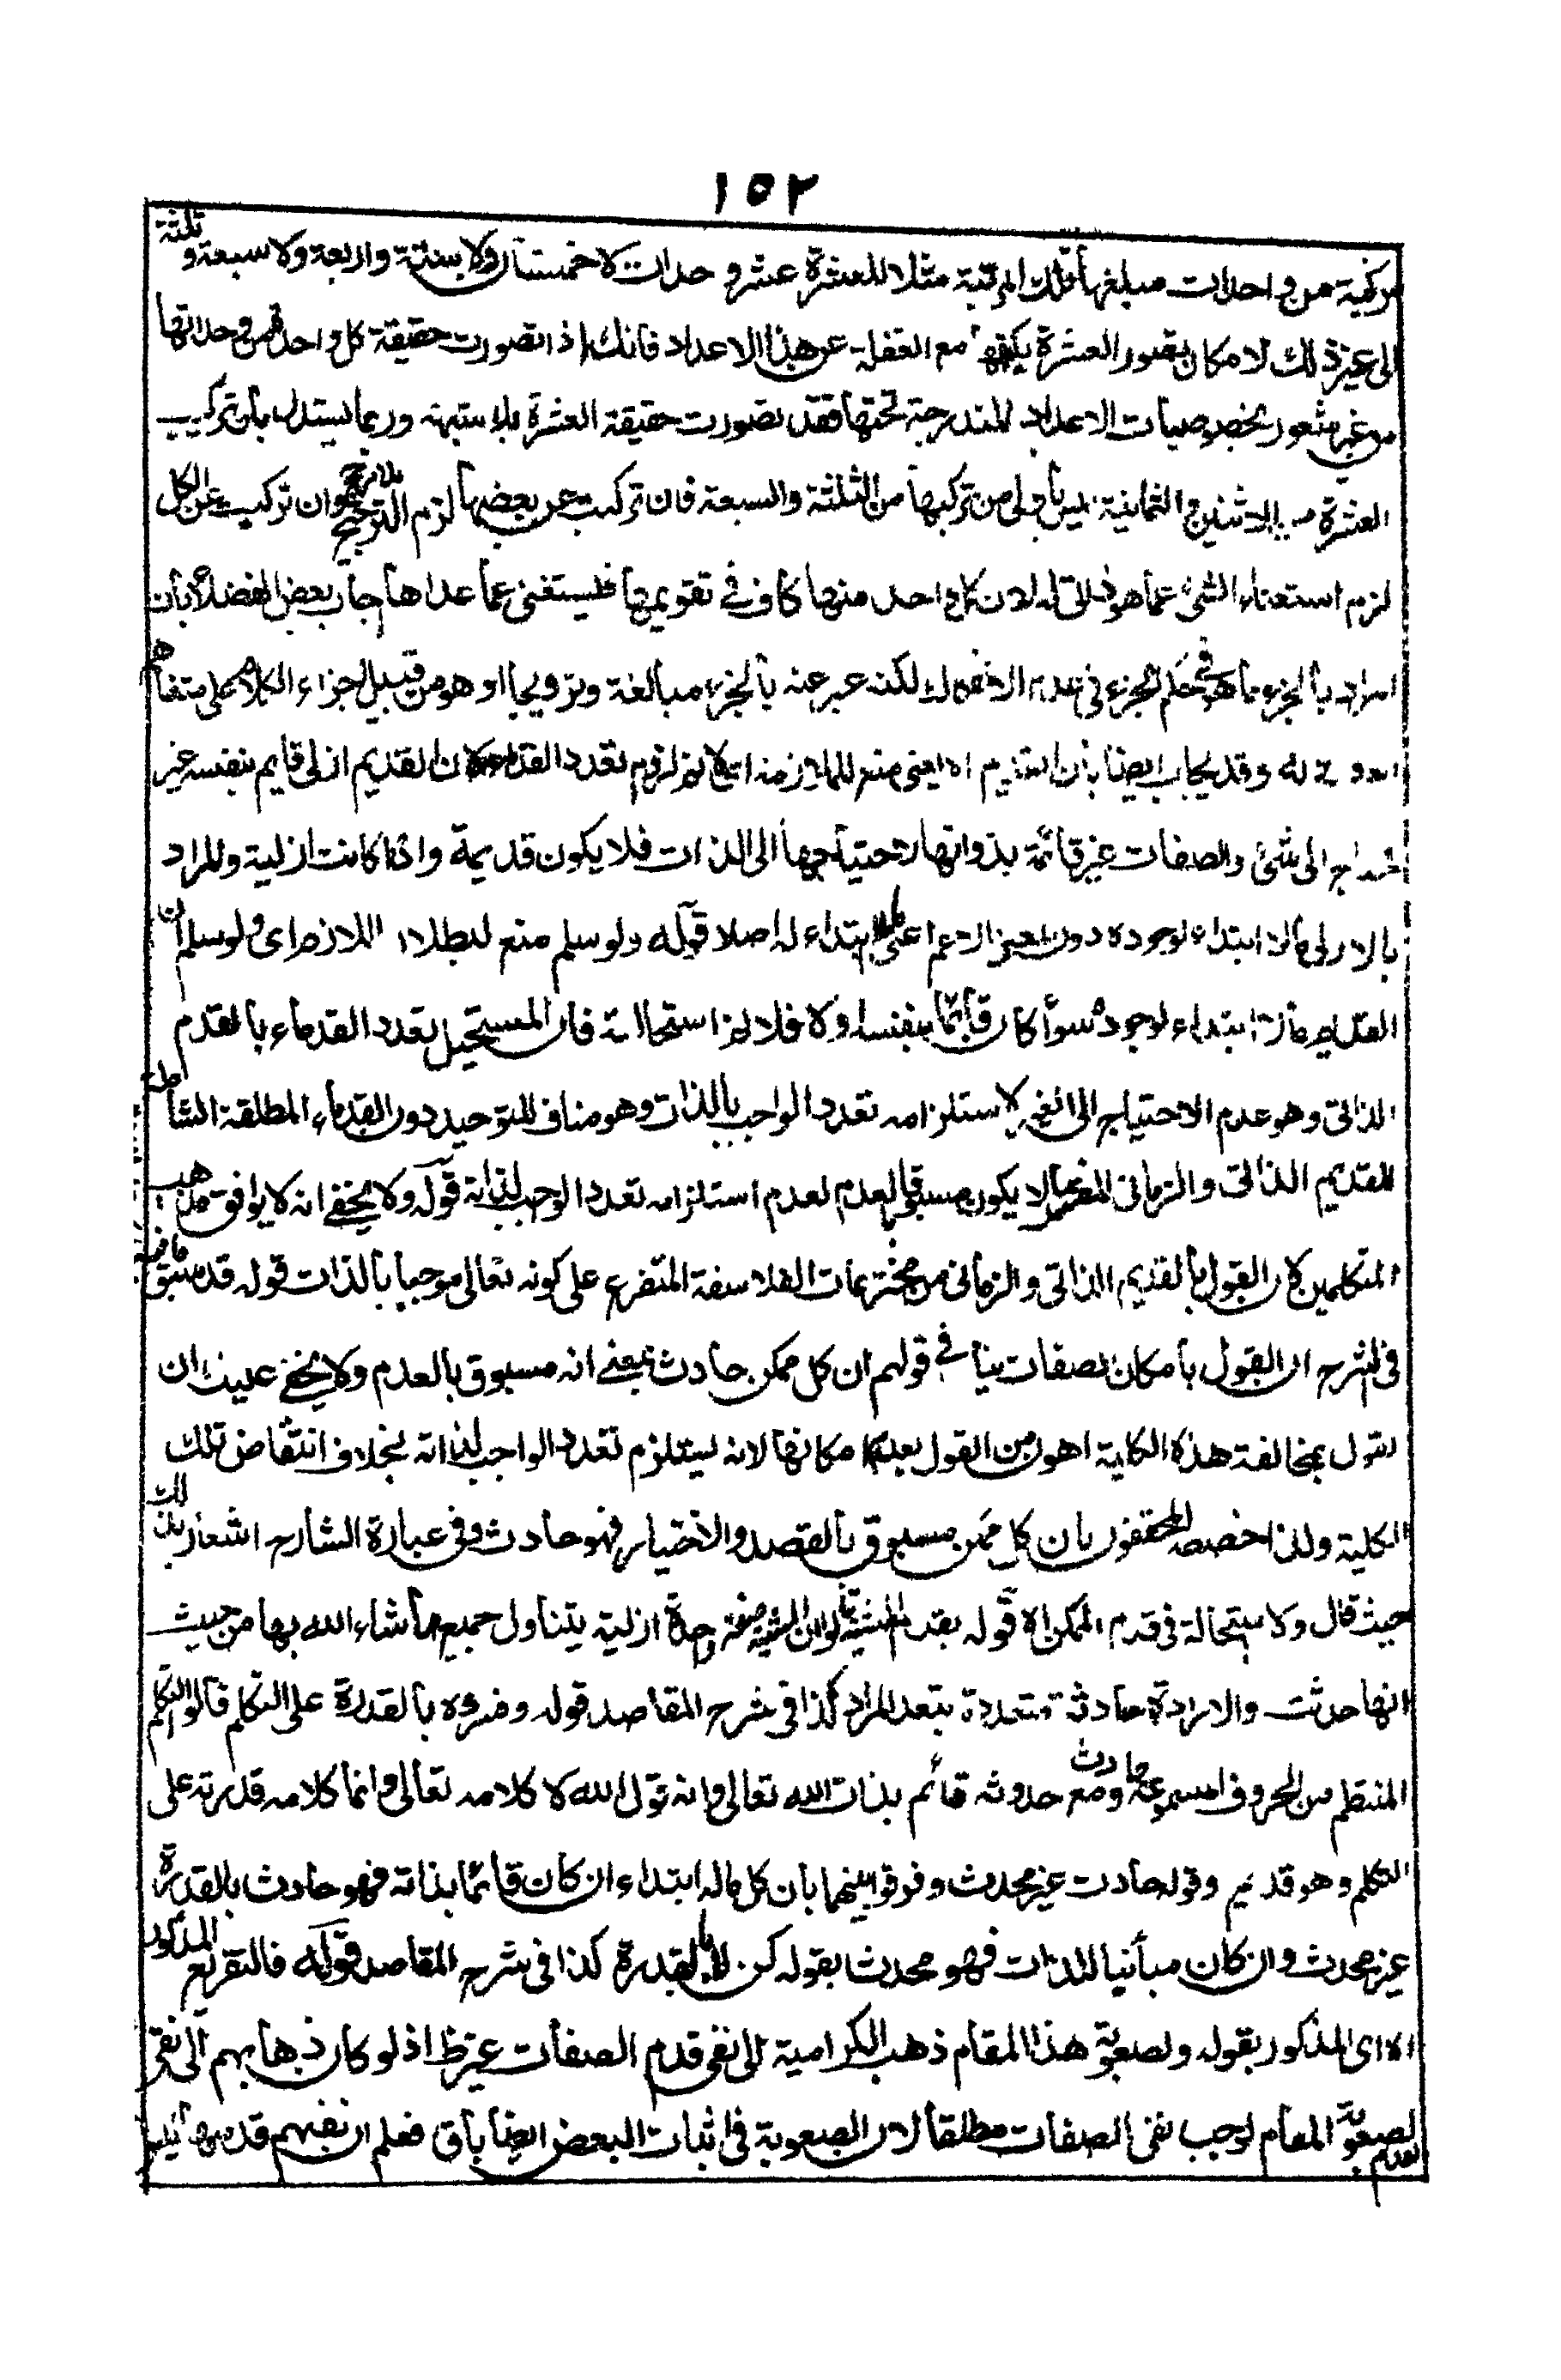 ١٥٢
مركبة من واحدات مبلغها تلك المرتبة مثلا للعشرة عشر وحدات لا خمستان ولا ستة واربعة ولا سبعة وثلثة
الى غير ذلك لامكان تصور العشرة بكنهها مع الغفلة عن هذا الاعداد فانك اذا تصورت حقيقة كل واحد من وحداتها
من غير شعور بخصوصيات الاعداد المندرجة تحتها فقد تصورت حقيقة العشرة بلا شبهة وربما يستدل بان تركيب
العشرة من الاثنين والثمانية ليس باولى من تركبها من الثلثة والسبعة فان تركبت عن بعضها لزم الترجيح بلا مرجح وان تركبت عن الكل
لزم استغناء الشئ عما هو ذاتى له لان كل واحد منها كاف فى تقويمها فيستغنى عما عداها اجاب بعض الفضلاء بان
المراد بالجزء ما هو فى حكم الجزء فى عدم الانفكاك لكنه عبر عنه بالجزء مبالغة وترويجا او هو من قبيل اجزاء الكلام على متفاهم
قوله وقد يجاب ايضا بان القديم اه يعنى منع الملازمة اى لا نم لزوم تعدد القدماء لان القديم ازلى قايم بنفسه غير
محتاج الى شئ والصفات غير قائمة بذواتها لاحتياجها الى الذات فلا يكون قديمة وان كانت ازلية والمراد
بالازلى ما لا ابتداء لوجوده دون المعنى الاعم اعنى ما لا ابتداء له اصلا قوله ولو سلم منع لبطلان اللازم اى ولو سلم ان
القديم ما لا ابتداء لوجوده سواء كان قائما بنفسه اولا فلا نم استحالته فان المستحيل تعدد القدماء بالقدم
الذاتى وهو عدم الاحتياج الى الغير لاستلزامه تعدد الواجب بالذات وهو مناف للتوحيد دون القدماء المطلقة الشاملة
للقديم الذاتى والزمانى المفسر بما لا يكون مسبوقا بالعدم لعدم استلزامه تعدد الواجب لذاته قوله ولا يخفى انه لا يوافق مذهب
المتكلمين لان القول بالقديم الذاتى والزمانى من مخترعات الفلاسفة المتفرع على كونه تعالى موجبا بالذات قوله قد سبق ما فيه
فى الشرح ان القول بامكان الصفات ينافى قولهم ان كل ممكن حادث بمعنى انه مسبوق بالعدم ولا يخفى عليك ان
القول بمخالفة هذه الكلية اهون من القول بعدم امكانها لانه يستلزم تعدد الواجب لذاته بخلاف انتقاض تلك
الكلية ولذا خصصه المحققون بان كل ممكن مسبوق بالقصد والاختيار فهو حادث وفى عبارة الشارح اشعار بذلك
حيث قال ولا استحالة فى قدم الممكن اه قوله بقدم المشية قالوا ان المشية صفة واحدة ازلية يتناول جميع ما شاء الله بها من حيث
انها حدثت والارادة حادثة متعددة بتعدد المراد كذا فى شرح المقاصد قوله وفسروه بالقدرة على التكلم قالوا التكلم
المنتظم من الحروف المسموعة حادث ومع حدوثه قائم بذات الله تعالى وانه قول الله لا كلامه تعالى وانما كلامه قدرته على
التكلم وهو قديم وقوله حادث غير محدث وفرقوا بينهما بان كل ما له ابتداء ان كان قائما بذاته فهو حادث بالقدرة
غير محدث وان كان مبائنا للذات فهو محدث بقوله كن لا بالقدرة كذا فى شرح المقاصد قوله فالتفريع المذكور
اه اى المذكور بقوله ولصعوبة هذا المقام ذهب الكرامية الى نفى قدم الصفات غير ظ اذ لو كان ذهابهم الى نفى
لصعوبة المقام لوجب نفى الصفات مطلقا لان الصعوبة فى اثبات البعض ايضا باق فعلم ان نفيهم قدمها ليس
لعدم